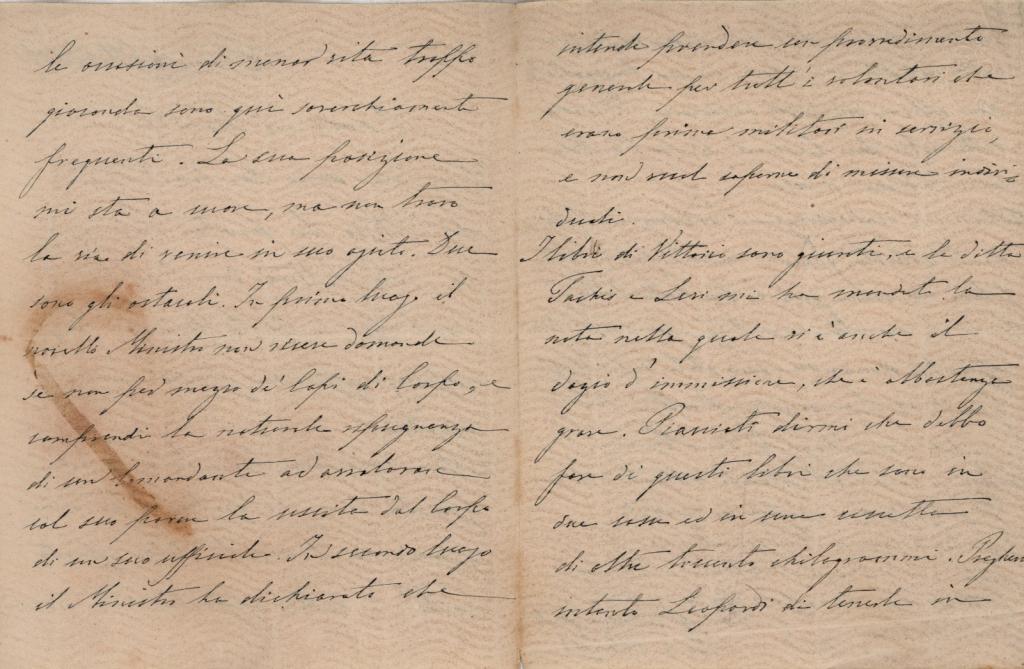 le occasioni di menar vita troppo
gioconda sono quì soverchiamente
frequenti. La sua posizione
mi sta a cuore, ma non trovo
la via di venire in suo ajuto. Due
sono gli ostacoli. In primo luogo il
novello Ministro non riceve domande
se non per mezzo de' Capi di Corpo, e
comprendi la naturale ripugnanza
di un Comandante ad avvalorare
col suo parere la uscita dal Corpo
di un suo uffiziale. In secondo luogo
il Ministro ha dichiarato che
intende prendere un provvedimento
generale per tutt'i volontari che
erano prima militari in servizio,
e non vuol saperne di misure indivi-
duali.
I libri di Vittorio sono giunti, e la ditta
Tachis e Levi mi ha mandato la
nota nella quale vi è anche il
dazio d'immissione, che è abbastanza
grave. Piacciati dirmi che debbo
fare di questi libri che sono in
due casse ed in una cassetta
di oltre trecento chilogrammi. Pregherei
intanto Leopardi di tenerle in